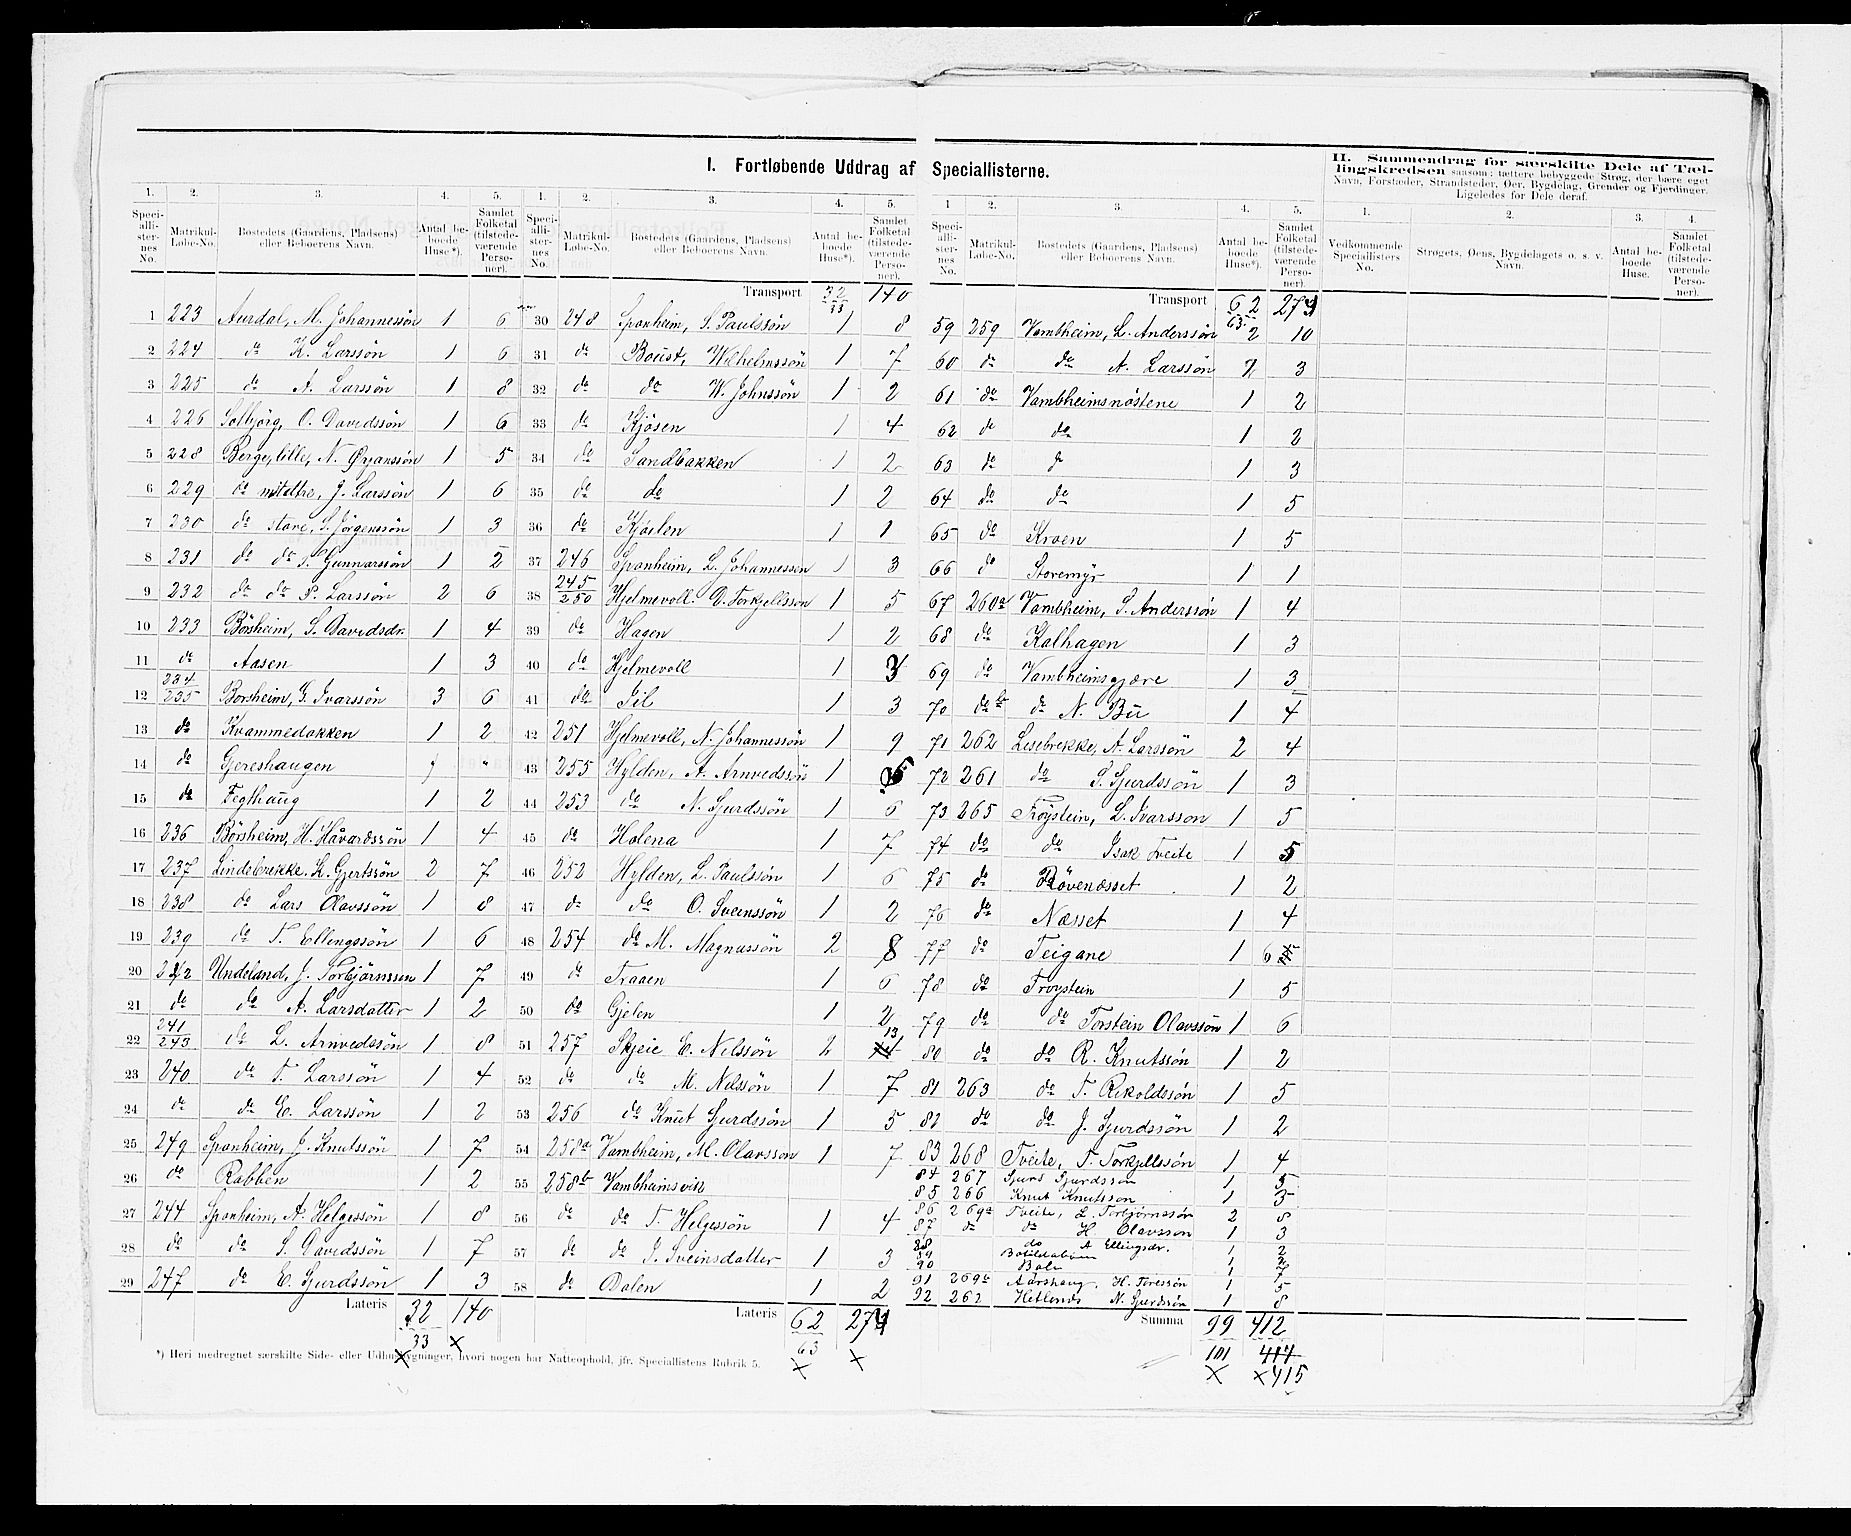 I. Fortløbende Uddrag af Speciallisterne.
II. Sammendrag for særskilte Dele af Tællingskredsen saasom: tættere bebyggede Strøg, der bære eget
Navn, Forstæder, Strandsteder, Øer, Bygdelag, Grender og Fjerdinger.
Ligeledes for Dele deraf.
1. 2. 3. 4. 5.
Speciallisternes No. Matrikul-Løbe-No. Bostedets (Gaardens, Pladsens) eller Beboerens Navn. Antal beboede Huse*). Samlet Folketal (tilstedeværende Personer).
1 223 Aurdal, M. Johannessön 1 6
2 224 do K. Larssön 1 6
3 225 do A. Larssön 1 8
4 226 Solbjörg, O. Davidssön 1 6
5 228 Berge, lille, N. Örjanssön 1 5
6 229 do mitaltre, J. Larssön 1 6
7 230 do store, S. Jörgenssön 1 3
8 231 do do T. Gunnarssön 1 2
9 232 do do P. Larssön 2 6
10 233 Börsheim, S. Davidsdr. 1 4
11 do Aasen 1 3
12 234/235 Borsheim, G. Ivarssön 3 6
13 do Kvammedokken 1 2
14 do Gjereshaugen " "
15 do Fegthaug 1 2
16 236 Börsheim, H. Håvardssön 1 4
17 237 Lindebrekke, K. Gjertssön 2 7
18 238 do Lars Olavssön 1 8
19 239 do T. Ellingssön 1 6
20 242 Undeland, J. Torbjörnssen 1 7
21 do do A. Larsdatter 1 2
22 241/243 do L. Arnvedssön 1 8
23 240 do T. Larssön 1 4
24 do do E. Larssön 1 2
25 249 Sponheim, J. Knutssön 1 7
26 do Robben 1 2
27 244 Sponheim, A. Helgessön 1 8
28 do do S. Davidssön 1 7
29 247 do E. Sjurdssön 1 3
Lateris 32 140
33
x x
*) Heri medregnet særskilte Side- eller Udhusbygninger, hvori nogen har Natteophold, jfr. Speciallistens Rubrik 5.
1. 2. 3. 4. 5.
Speciallisternes No. Matrikul-Løbe-No. Bostedets (Gaardens, Pladsens) eller Beboerens Navn. Antal beboede Huse*). Samlet Folketal (tilstedeværende Personer).
Transport 32/33 140
30 248 Sponheim, S. Paulssön 1 8
31 do Boust, Wilhelmssön 1 7
32 do do W. Johnssön 1 2
33 do Kjösen 1 4
34 do Sandbakken 1 2
35 do do 1 2
36 do Kjöilen 1 1
37 246 Sponheim, L. Johannessön 1 3
38 245/250 Hjelmevoll. D. Torkjellsson 1 5
39 do Hagen 1 2
40 do Hjelmevoll 1 3
41 do Jil 1 3
42 251 Hjelmevoll, N. Johannessön 1 9
43 255 Hylden, A. Arnvedssön 1 5
44 253 do N. Sjurdssön 1 6
45 do Holena 1 7
46 252 Hylden, L. Paulssön 1 6
47 do do O. Sveinssön 1 2
48 254 do M. Magnussön 2 8
49 do Traaen 1 6
50 do Gjelen 1 2
51 257 Skjeie E. Nilssön 2 13
52 do do M. Nilssön 1 7
53 256 do Knut Sjurdssön 1 5
54 258a Vambheim, M. Olavsson 1 7
55 258b Vambheimsvik
56 do do T. Helgessön 1 4
57 do do I. Sveinsdatter 1 3
58 do Dalen 1 2
Lateris 62 274
63
x x
1 2. 3. 4. 5.
Speciallisternes No. Matrikul-Løbe-No. Bostedets (Gaardens, Pladsens) eller Beboerens Navn. Antal beboede Huse*). Samlet Folketal (tilstedeværende Personer).
Transport 62/63 274
59 259 Vambheim, L. Anderssön 2 10
60 do do A. Larssön 2 3
61 do Vambheimsnöstene 1 2
62 do do 1 2
63 do do 1 3
64 do do 1 5
65 do Kroen 1 5
66 do Storemyr 1 1
67 260a Vambheim, S. Anderssön 1 4
68 do Kalhagen 1 3
69 do Vambheimsgjære 1 3
70 do b do N. Bu 1 4
71 262 Lisebrekke, A. Larssön 2 4
72 261 do S. Sjurdssön 1 3
73 265 Fröystein, L. Ivarsson 1 5
74 do do Isak Tveite 1 5
75 do Rövenæsset 1 2
76 do Næsset 1 4
77 do Teigane 1 6
78 do Froystein 1 5
79 do do Torstein Olavssön 1 6
80 do do R. Knutssön 1 2
81 263 do T. Rikoldssön 1 5
82 do do J. Sjurdssön 1 2
83 268 Tveite, T. Torkjellssön 1 4
84 267 Sjurs Sjurdsson 1 5
85 266 Knut Knutsson 1 3
86 269a Tveite, L. Torbjörnssön 2 8
87 do do H. Olavsson 1 3
88 do A Ellingsdr. 1 2
89 1 2
90 1 7
91 269b Aarshaug, H. Toressön 1 5
92 262 Hetlends N. Sjurdssön 1 8
Summa 99 412
101 414
x x 415
1. 2. 3. 4.
Vedkommende Speciallisters No. Strøgets, Øens, Bygdelagets o. s. v. Navn. Antal beboede Huse. Samlet Folketal (tilstedeværende Personer).